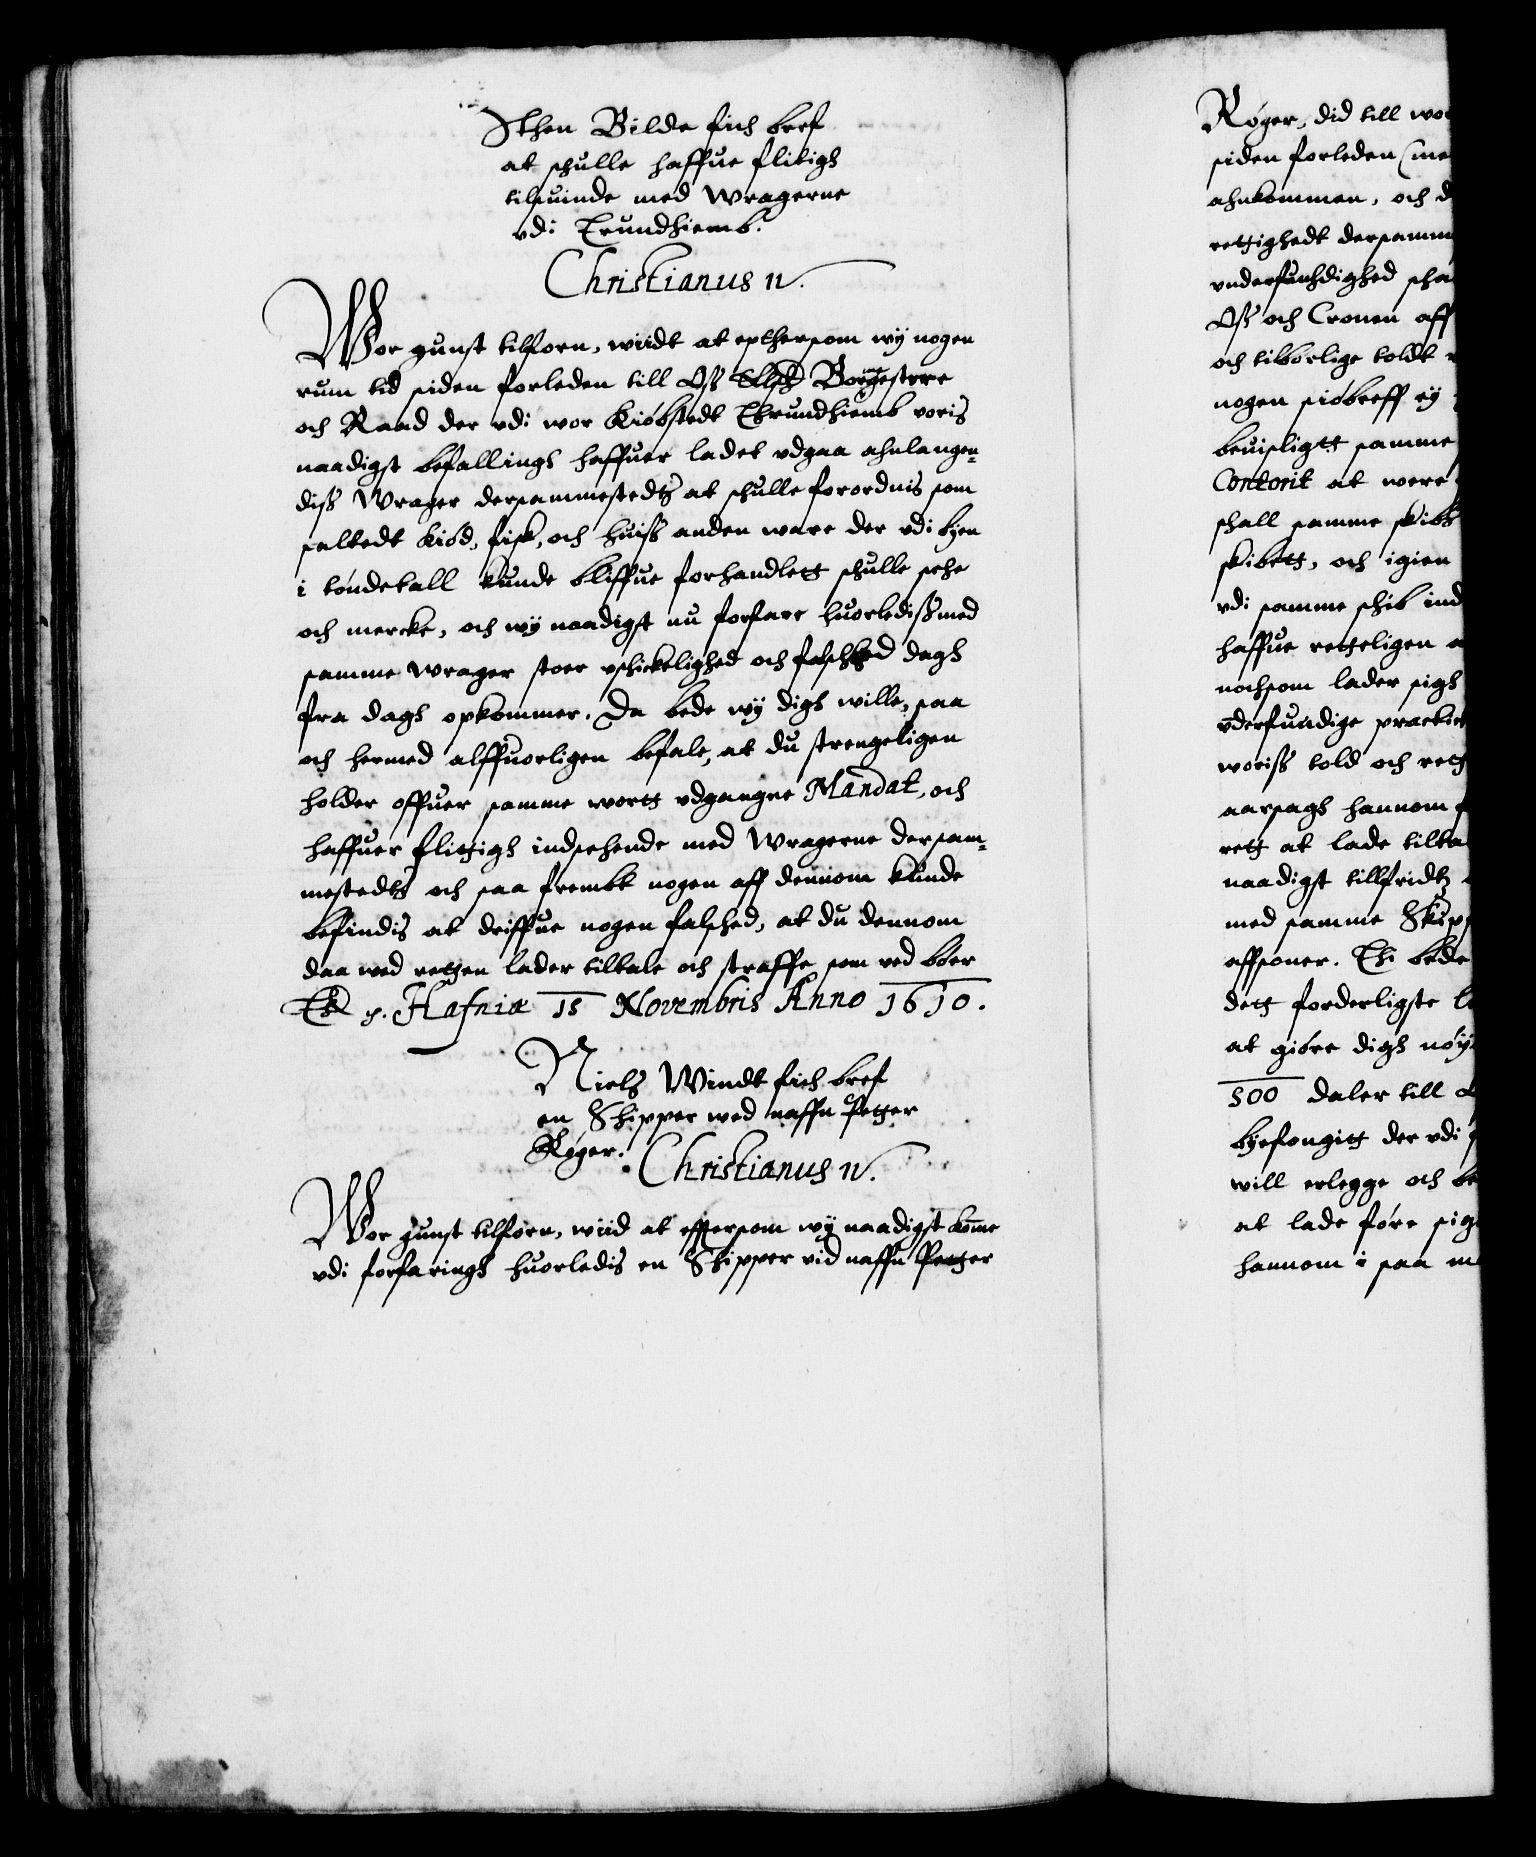 Sthen Bilde fich breff
at schulle haffue flitigh
tilsuinde med Wragerne
vdi Trundhiemb.
Christianus 4.
Wor gunst tilforn, wiidt at epthersom wy nogen
rum tid siden forleden till Oss Borgestere
och Raad der vdi wor Kiøbstedt Thrundhiemb voris
naadigst befallingh haffuer ladet vdgaa ahnlangen-
diss Wrager dersammestedtz at schulle forordnis som
saltedt kiød, fisk, och huiss anden ware der vdi byen
i tøndetall kunde bliffue forhandlett schulle sehe
och mercke, och wy naadigst nu forfare huorlediss med
samme wrager stoer vschickelighed och falschhed dagh
fra dagh opkommer. Da bede wy digh wille, saa
och hermed alffuorligen befale, at du strengeligen
holder offuer samme wortt vdgangne Mandat, och
haffuer flittigh indseende med Wragerne dersam-
mestedtz och saa frembt nogen aff dennom kunde
befindis at driffue nogen falshed, at du dennom
daa wed retten lader tiltale och straffe som ved bøer
Ex. Hafniæ 15 Novembris Anno 1610.
Niels Windt fich breff
en Skipper wed naffn Petter
Røger.
Christianus 4.
Wor gunst tilforn, wiid at effttersom wy naadigst komme
vdi forfaringh huorledis en Skipper vid naffn Petter
Røger, did till
siden forleden
ahnkommen, och
rettighedt
underfundighed
Oss och Cronen aff
och tilbørlige toldt
nogen siøbreff ey
beuisligtt samme
Contorit at were
schall samme skib
skibett, och igien
vdi samme schib ind
haffue retteligen
nochsom lader sigh
vnderfundige
woriss told och
aarsagh hannom
rett at lade
naadigst tillfridtz
med samme
affsoner. Thi bede
dett forderligste
at giøre digh
500 daler till
byefongitt der vdi
will erlegge och
at lade føre
hannom i saa